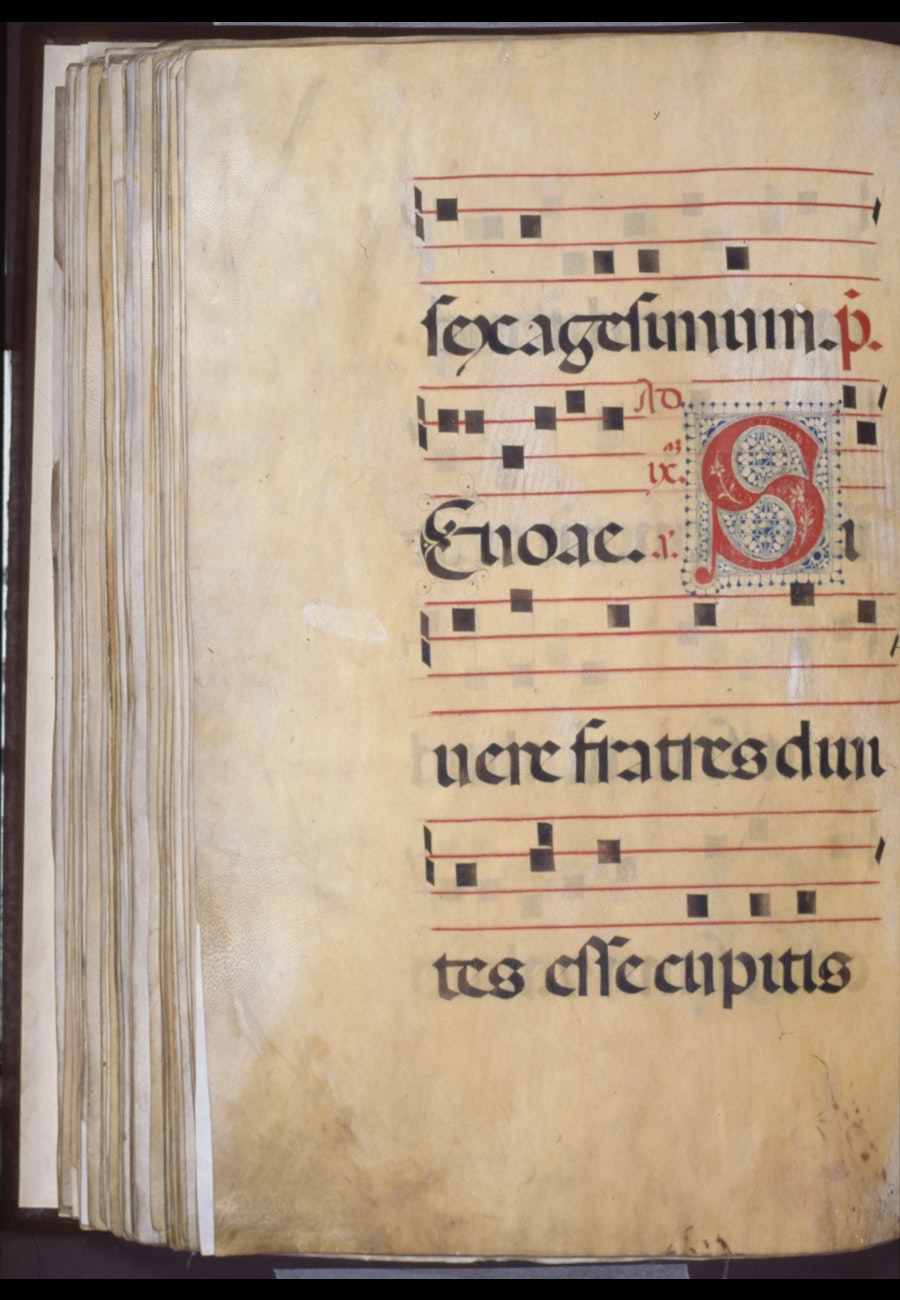 sexagesimum. p̄.
Euoae. Ad ixᵃᵐ. a᷑. Si
uere fratres diui
tes esse cupitis